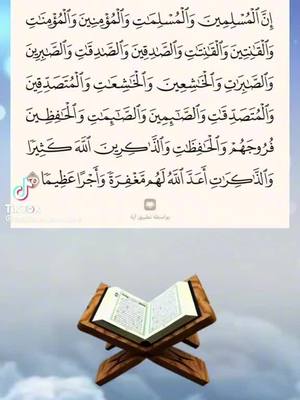 إِنَّ ٱلْمُسْلِمِينَ وَٱلْمُسْلِمَٰتِ وَٱلْمُؤْمِنِينَ وَٱلْمُؤْمِنَٰتِ
وَٱلْقَٰنِتِينَ وَٱلْقَٰنِتَٰتِ وَٱلصَّٰدِقِينَ وَٱلصَّٰدِقَٰتِ وَٱلصَّٰبِرِينَ
وَٱلصَّٰبِرَٰتِ وَٱلْخَٰشِعِينَ وَٱلْخَٰشِعَٰتِ وَٱلْمُتَصَدِّقِينَ
وَٱلْمُتَصَدِّقَٰتِ وَٱلصَّٰٓئِمِينَ وَٱلصَّٰٓئِمَٰتِ وَٱلْحَٰفِظِينَ
فُرُوجَهُمْ وَٱلْحَٰفِظَٰتِ وَٱلذَّٰكِرِينَ ٱللَّهَ كَثِيرًا
وَٱلذَّٰكِرَٰتِ أَعَدَّ ٱللَّهُ لَهُم مَّغْفِرَةً وَأَجْرًا عَظِيمًا ٣٥
بواسطة تطبيق آية